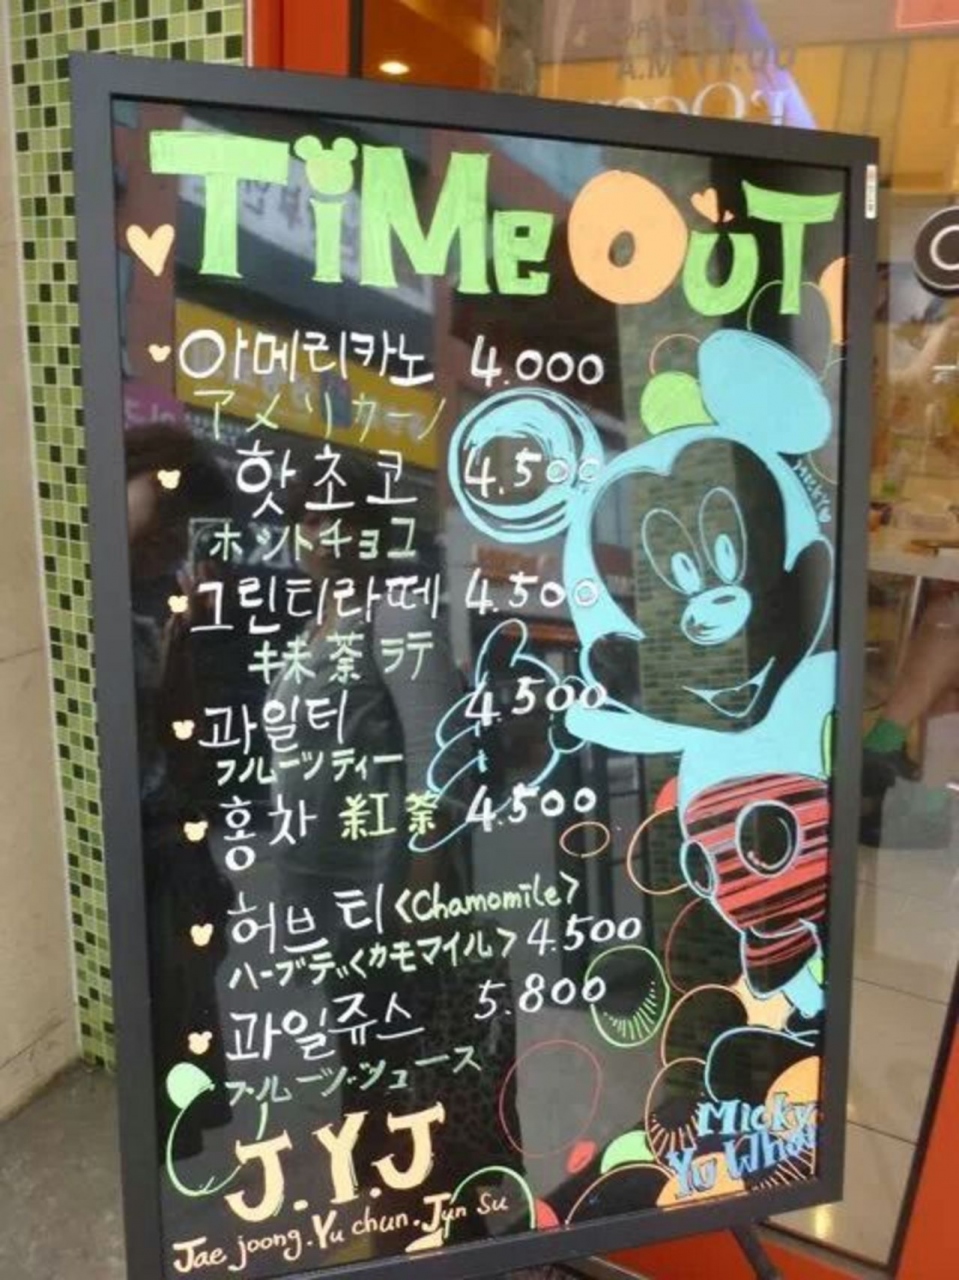 TiMe OuT
아메리카노 4.000
アメリカーノ
핫초코 4.500
ホットチョコ
그린티라떼 4.500
抹茶ラテ
과일티 4.500
フルーツティー
홍차 紅茶 4.500
허브티 <Chamomile>
ハーブティ<カモマイル> 4.500
과일쥬스 5.800
フルーツジュース
J.Y.J
Jae joong.Yu chun.Jun Su
Micky
Yu